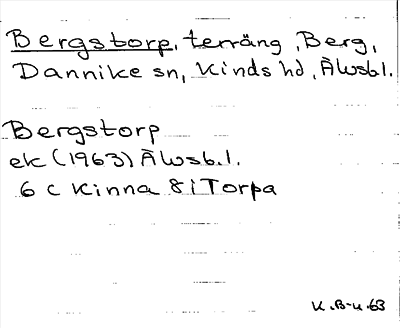 Bergstorp, terräng, Berg,
Dannike sn, Kinds hd, Älvsb.l.
Bergstorp
ek (1963) Älvsb.l.
6 C Kinna 8 i Torpa
K.B-u.63